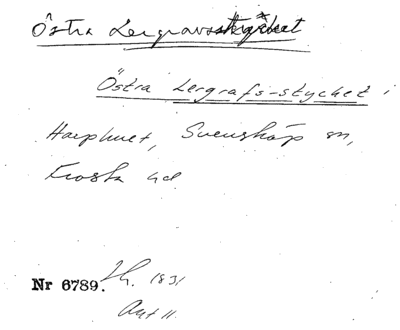 Östra Lergravsstycket
Östra Lergrafs-stycket i
Harphuet, Svensköp sn,
Frosta hd
Nr 6789. Lh. 1831
Akt 11.